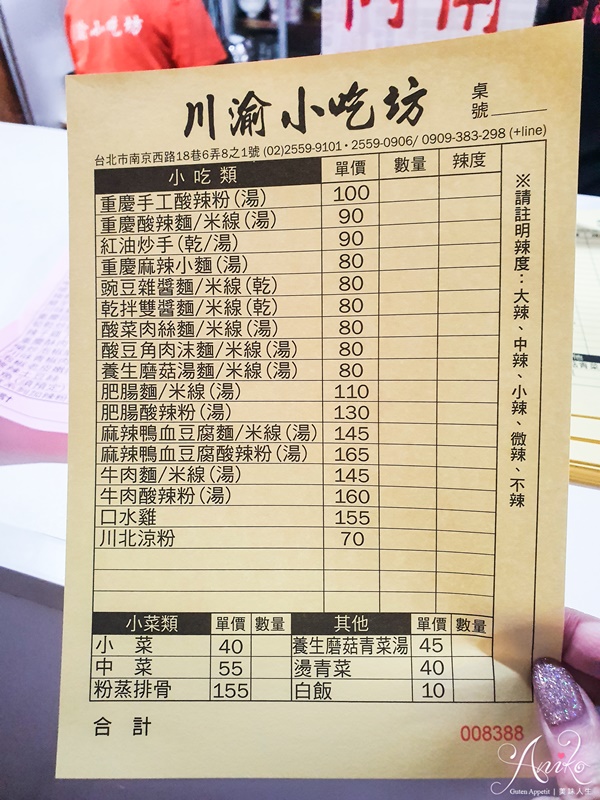 渝小吃坊
川渝小吃坊
桌
號
台北市南京西路18巷6弄8之1號 (02)2559-9101・2559-0906/ 0909-383-298 (+line)
小吃類 單價 數量 辣度
重慶手工酸辣粉(湯) 100
重慶酸辣麵/米線(湯) 90
紅油炒手(乾/湯) 90
重慶麻辣小麵(湯) 80
豌豆雜醬麵/米線(乾) 80
乾拌雙醬麵/米線(乾) 80
酸菜肉絲麵/米線(湯) 80
酸豆角肉沫麵/米線(湯) 80
養生磨菇湯麵/米線(湯) 80
肥腸麵/米線(湯) 110
肥腸酸辣粉(湯) 130
麻辣鴨血豆腐麵/米線(湯) 145
麻辣鴨血豆腐酸辣粉(湯) 165
牛肉麵/米線(湯) 145
牛肉酸辣粉(湯) 160
口水雞 155
川北涼粉 70
※請註明辣度：大辣、中辣、小辣、微辣、不辣
小菜類 單價 數量 其他 單價 數量
小 菜 40 養生磨菇青菜湯 45
中 菜 55 燙青菜 40
粉蒸排骨 155 白飯 10
合 計
008388
Aniko
Guten Appetit | 美味人生